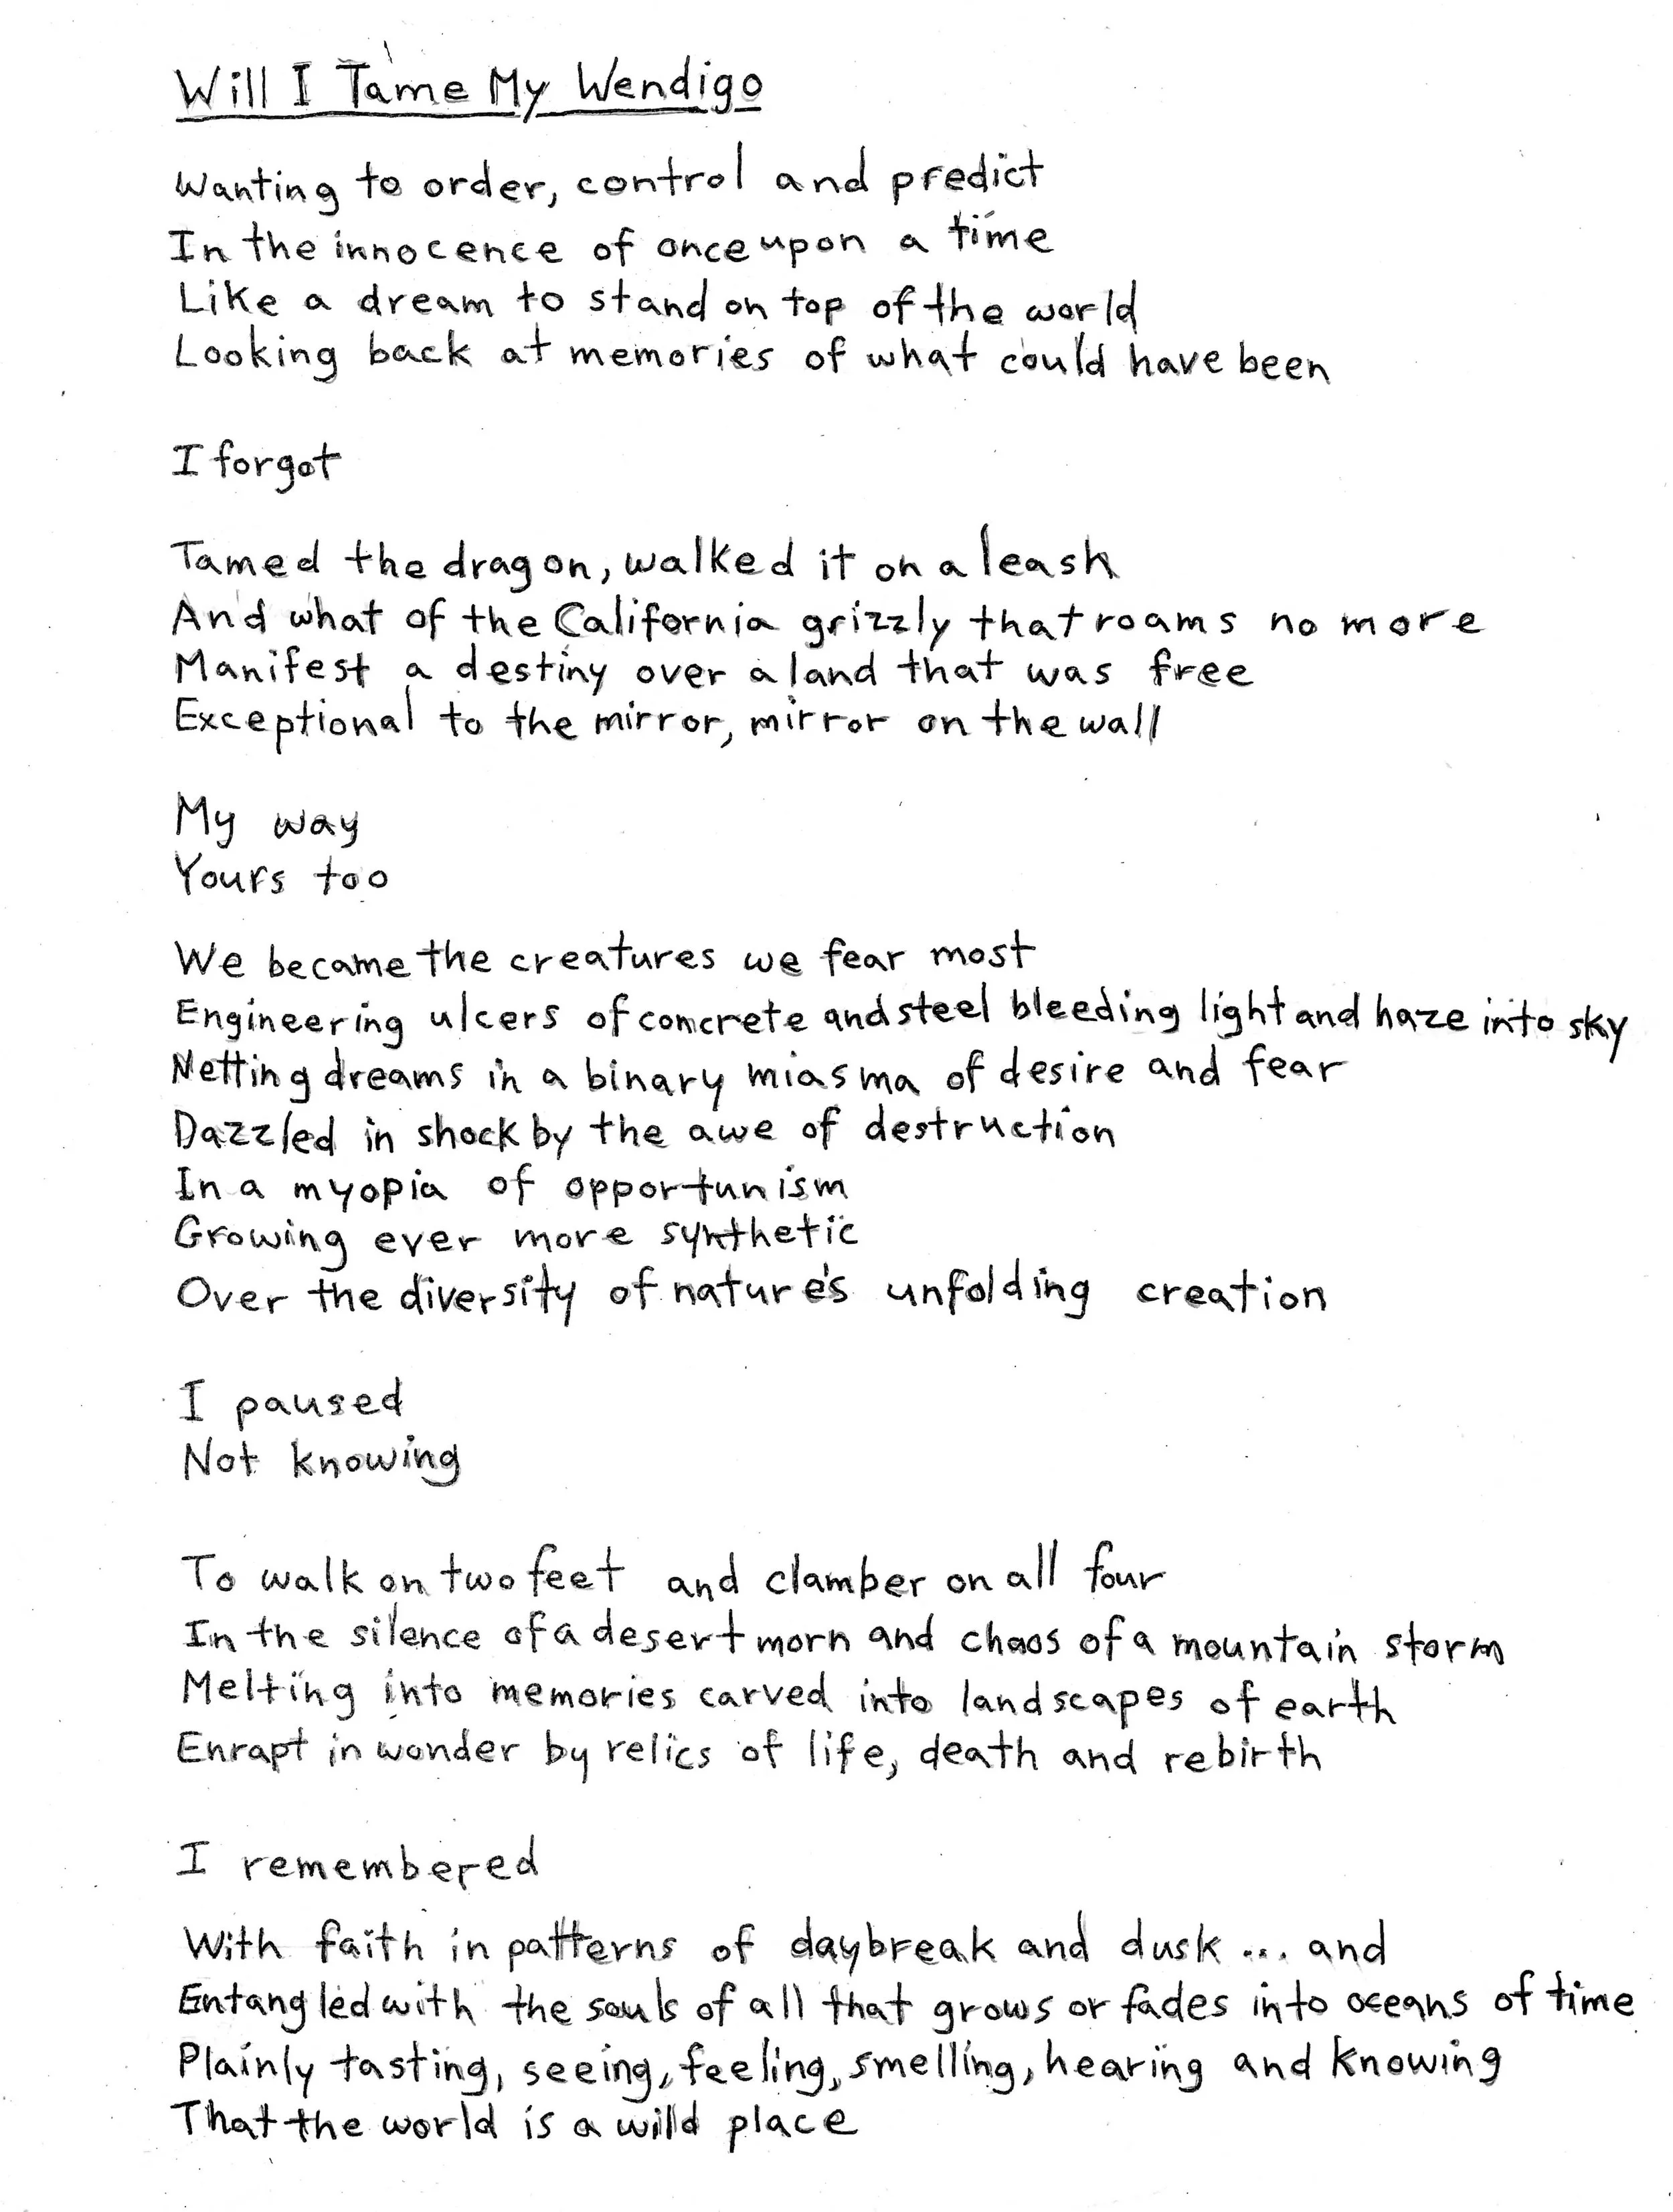 Will I Tame My Wendigo
Wanting to order, control and predict
In the innocence of once upon a time
Like a dream to stand on top of the world
Looking back at memories of what could have been
I forgot
Tamed the dragon, walked it on a leash
And what of the California grizzly that roams no more
Manifest a destiny over a land that was free
Exceptional to the mirror, mirror on the wall
My way
Yours too
We became the creatures we fear most
Engineering ulcers of concrete and steel bleeding light and haze into sky
Netting dreams in a binary miasma of desire and fear
Dazzled in shock by the awe of destruction
In a myopia of opportunism
Growing ever more synthetic
Over the diversity of nature's unfolding creation
I paused
Not knowing
To walk on two feet and clamber on all four
In the silence of a desert morn and chaos of a mountain storm
Melting into memories carved into landscapes of earth
Enrapt in wonder by relics of life, death and rebirth
I remembered
With faith in patterns of daybreak and dusk ... and
Entangled with the souls of all that grows or fades into oceans of time
Plainly tasting, seeing, feeling, smelling, hearing and knowing
That the world is a wild place